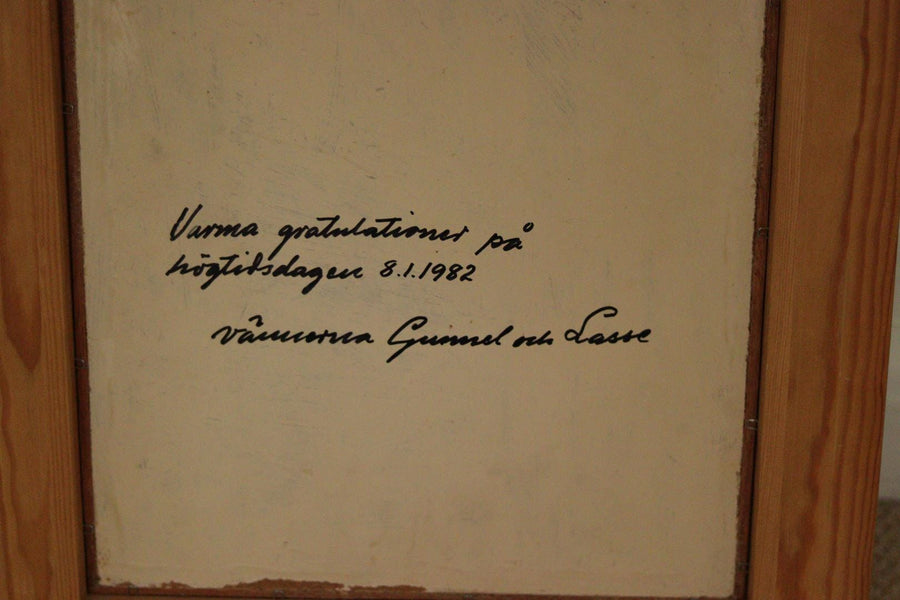 Varma gratulationer på
högtidsdagen 8.1.1982
vännerna Gunnel och Lasse